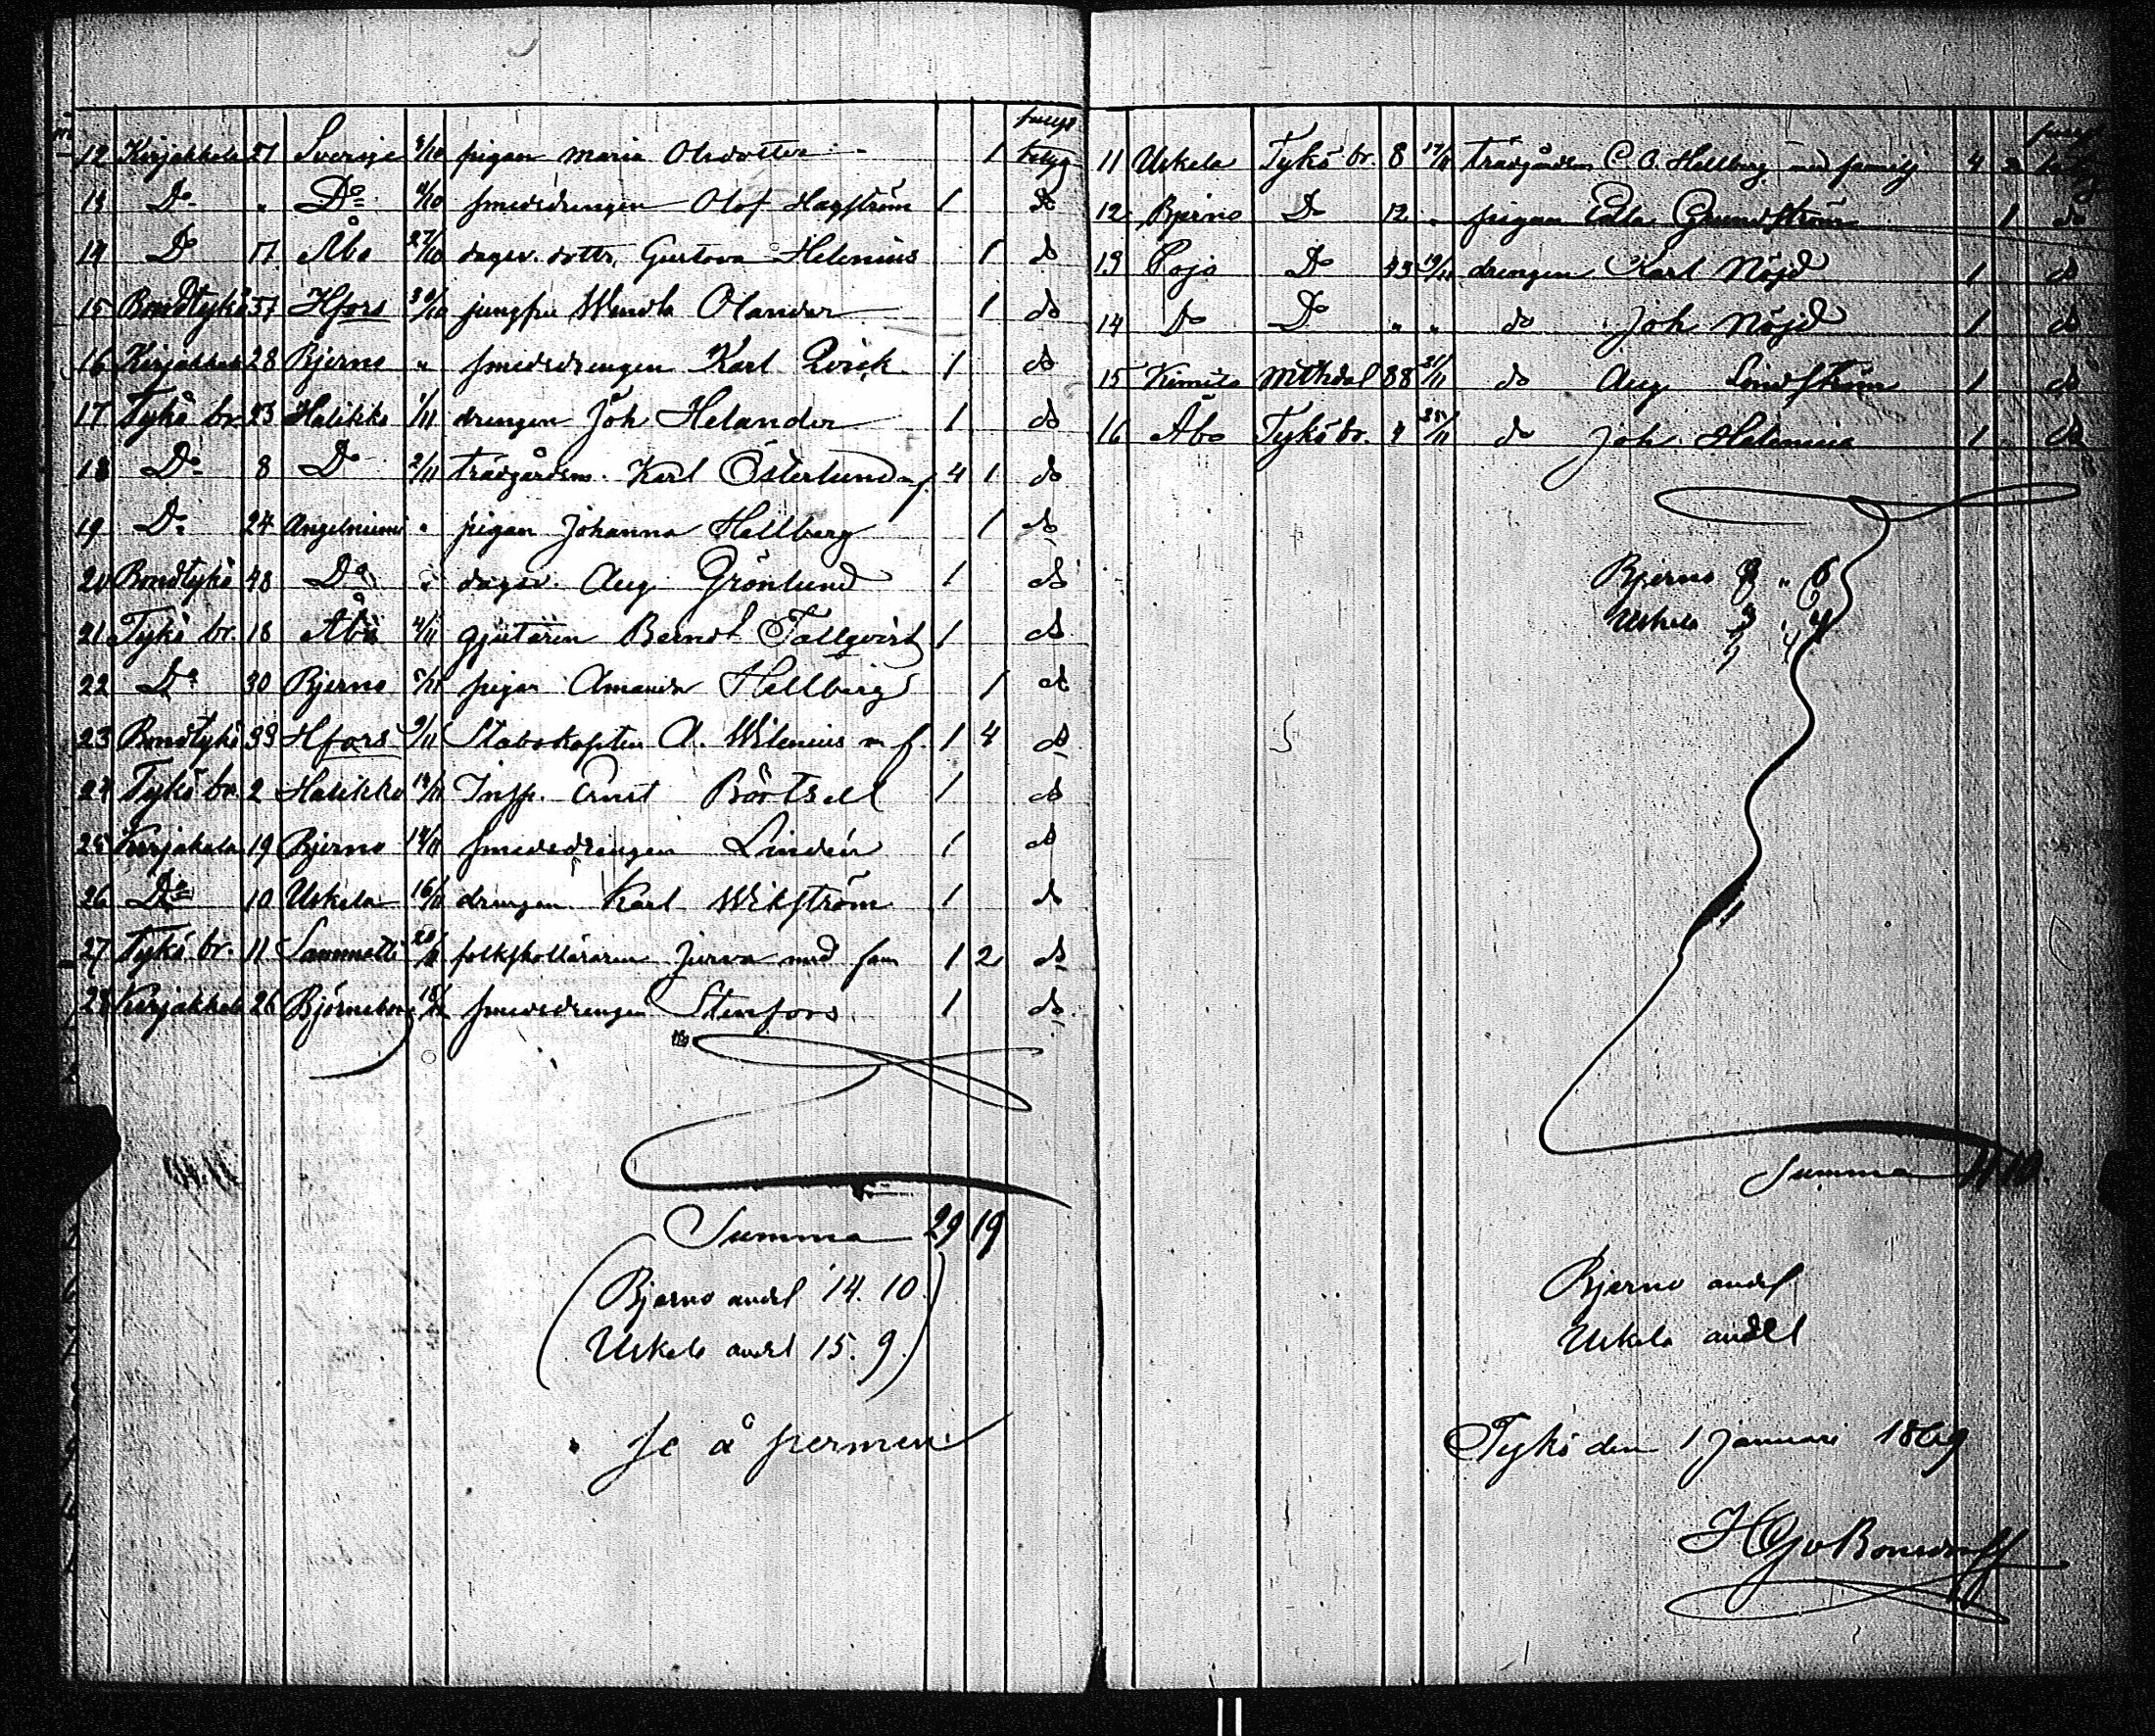 12 Kirjakkala 21 Sverige 9/10 pigan Maria Olsdotter - 1 betyg
13 Do " Do 9/10 smedsdrengen Olof Hagström 1 do
14 Do 17 Åbo 27/10 dagsv. dottr. Gustava Helenius 1 do
15 Bondtykö 57 Hfors 30/10 jungfru Wendla Olander 1 do
16 Kirjakkala 28 Bjerno " smedsdrengen Karl Qvick 1 do
17 Tykö br. 23 Halikko 1/11 drengen Joh Helander 1 do
18 Do 8 Do 2/11 trädgårdsm. Karl Österlund m f. 4 1 do
19 Do 24 Angelniemi " pigan Johanna Hellberg 1 do
20 Bondtykö 48 Do " dagsv. Aug Grönlund 1 do
21 Tykö br. 18 Åbo 4/11 gjutaren Berndt Tallqvist 1 do
22 Do 30 Bjerno 5/11 pigan Amanda Hellberg 1 do
23 Bondtykö 33 Hfors 9/11 Stabskapten A. Wilenius m f. 1 4 do
24 Tykö br. 2 Halikko 13/11 Insp. Ernst Börtsell 1 do
25 Kirjakala 19 Bjerno 14/11 smedsdrengen Lindén 1 do
26 Do 10 Uskela 16/11 drengen Karl Wikström 1 do
27 Tykö br. 11 Sammatti 20/11 folkskolläraren Jurva med fam 1 2 do
28 Kirjakkala 26 Björneborg smedsdrengen Stenfors 1 do
Summa 29 19
(Bjerno andel 14. 10
Uskela andel 15. 9.)
se å permen
11 Uskela Tykö br. 8 17/11 trädgårdsm C. O. Hellberg med familj 4 2 betyg
12 Bjerno Do 12 " pigan Edla Grundström 1 do
13 Pojo Do 43 19/11 drengen Karl Nöjd 1 do
14 Do Do " " do Joh Nöjd 1 do
15 Kimito Mthdal 38 21/11 do Aug Lindström 1 do
16 Åbo Tykö br. 4 25/11 do Joh. Helenius 1 do
Bjerno " 6
Uskela
Summa 11 10.
Bjerno andel
Uskela andel
Tykö den 1 Januari 1869
HGvBonsdorff